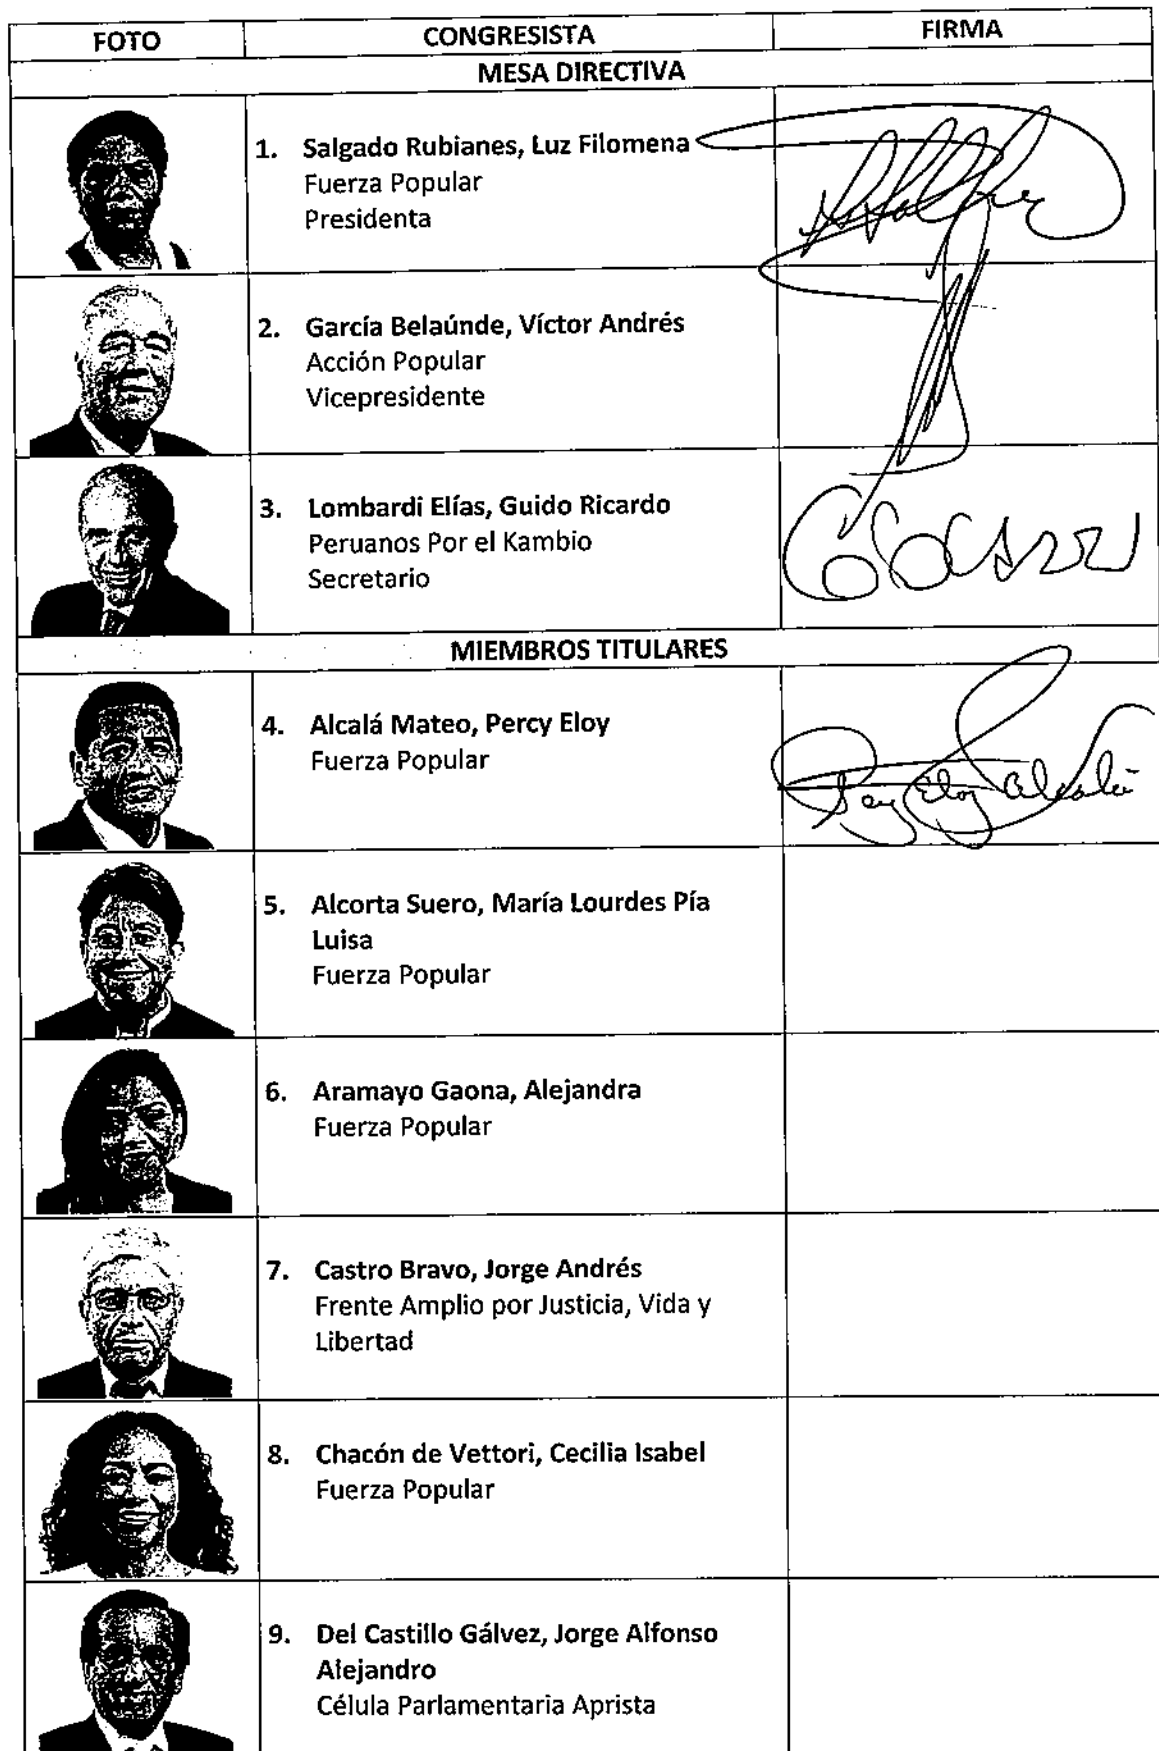 FOTO CONGRESISTA FIRMA
MESA DIRECTIVA
1. Salgado Rubianes, Luz Filomena
Fuerza Popular
Presidenta
2. García Belaúnde, Víctor Andrés
Acción Popular
Vicepresidente
3. Lombardi Elías, Guido Ricardo
Peruanos Por el Kambio
Secretario
MIEMBROS TITULARES
4. Alcalá Mateo, Percy Eloy
Fuerza Popular
Percy Eloy Alcalá
5. Alcorta Suero, María Lourdes Pía
Luisa
Fuerza Popular
6. Aramayo Gaona, Alejandra
Fuerza Popular
7. Castro Bravo, Jorge Andrés
Frente Amplio por Justicia, Vida y
Libertad
8. Chacón de Vettori, Cecilia Isabel
Fuerza Popular
9. Del Castillo Gálvez, Jorge Alfonso
Alejandro
Célula Parlamentaria Aprista